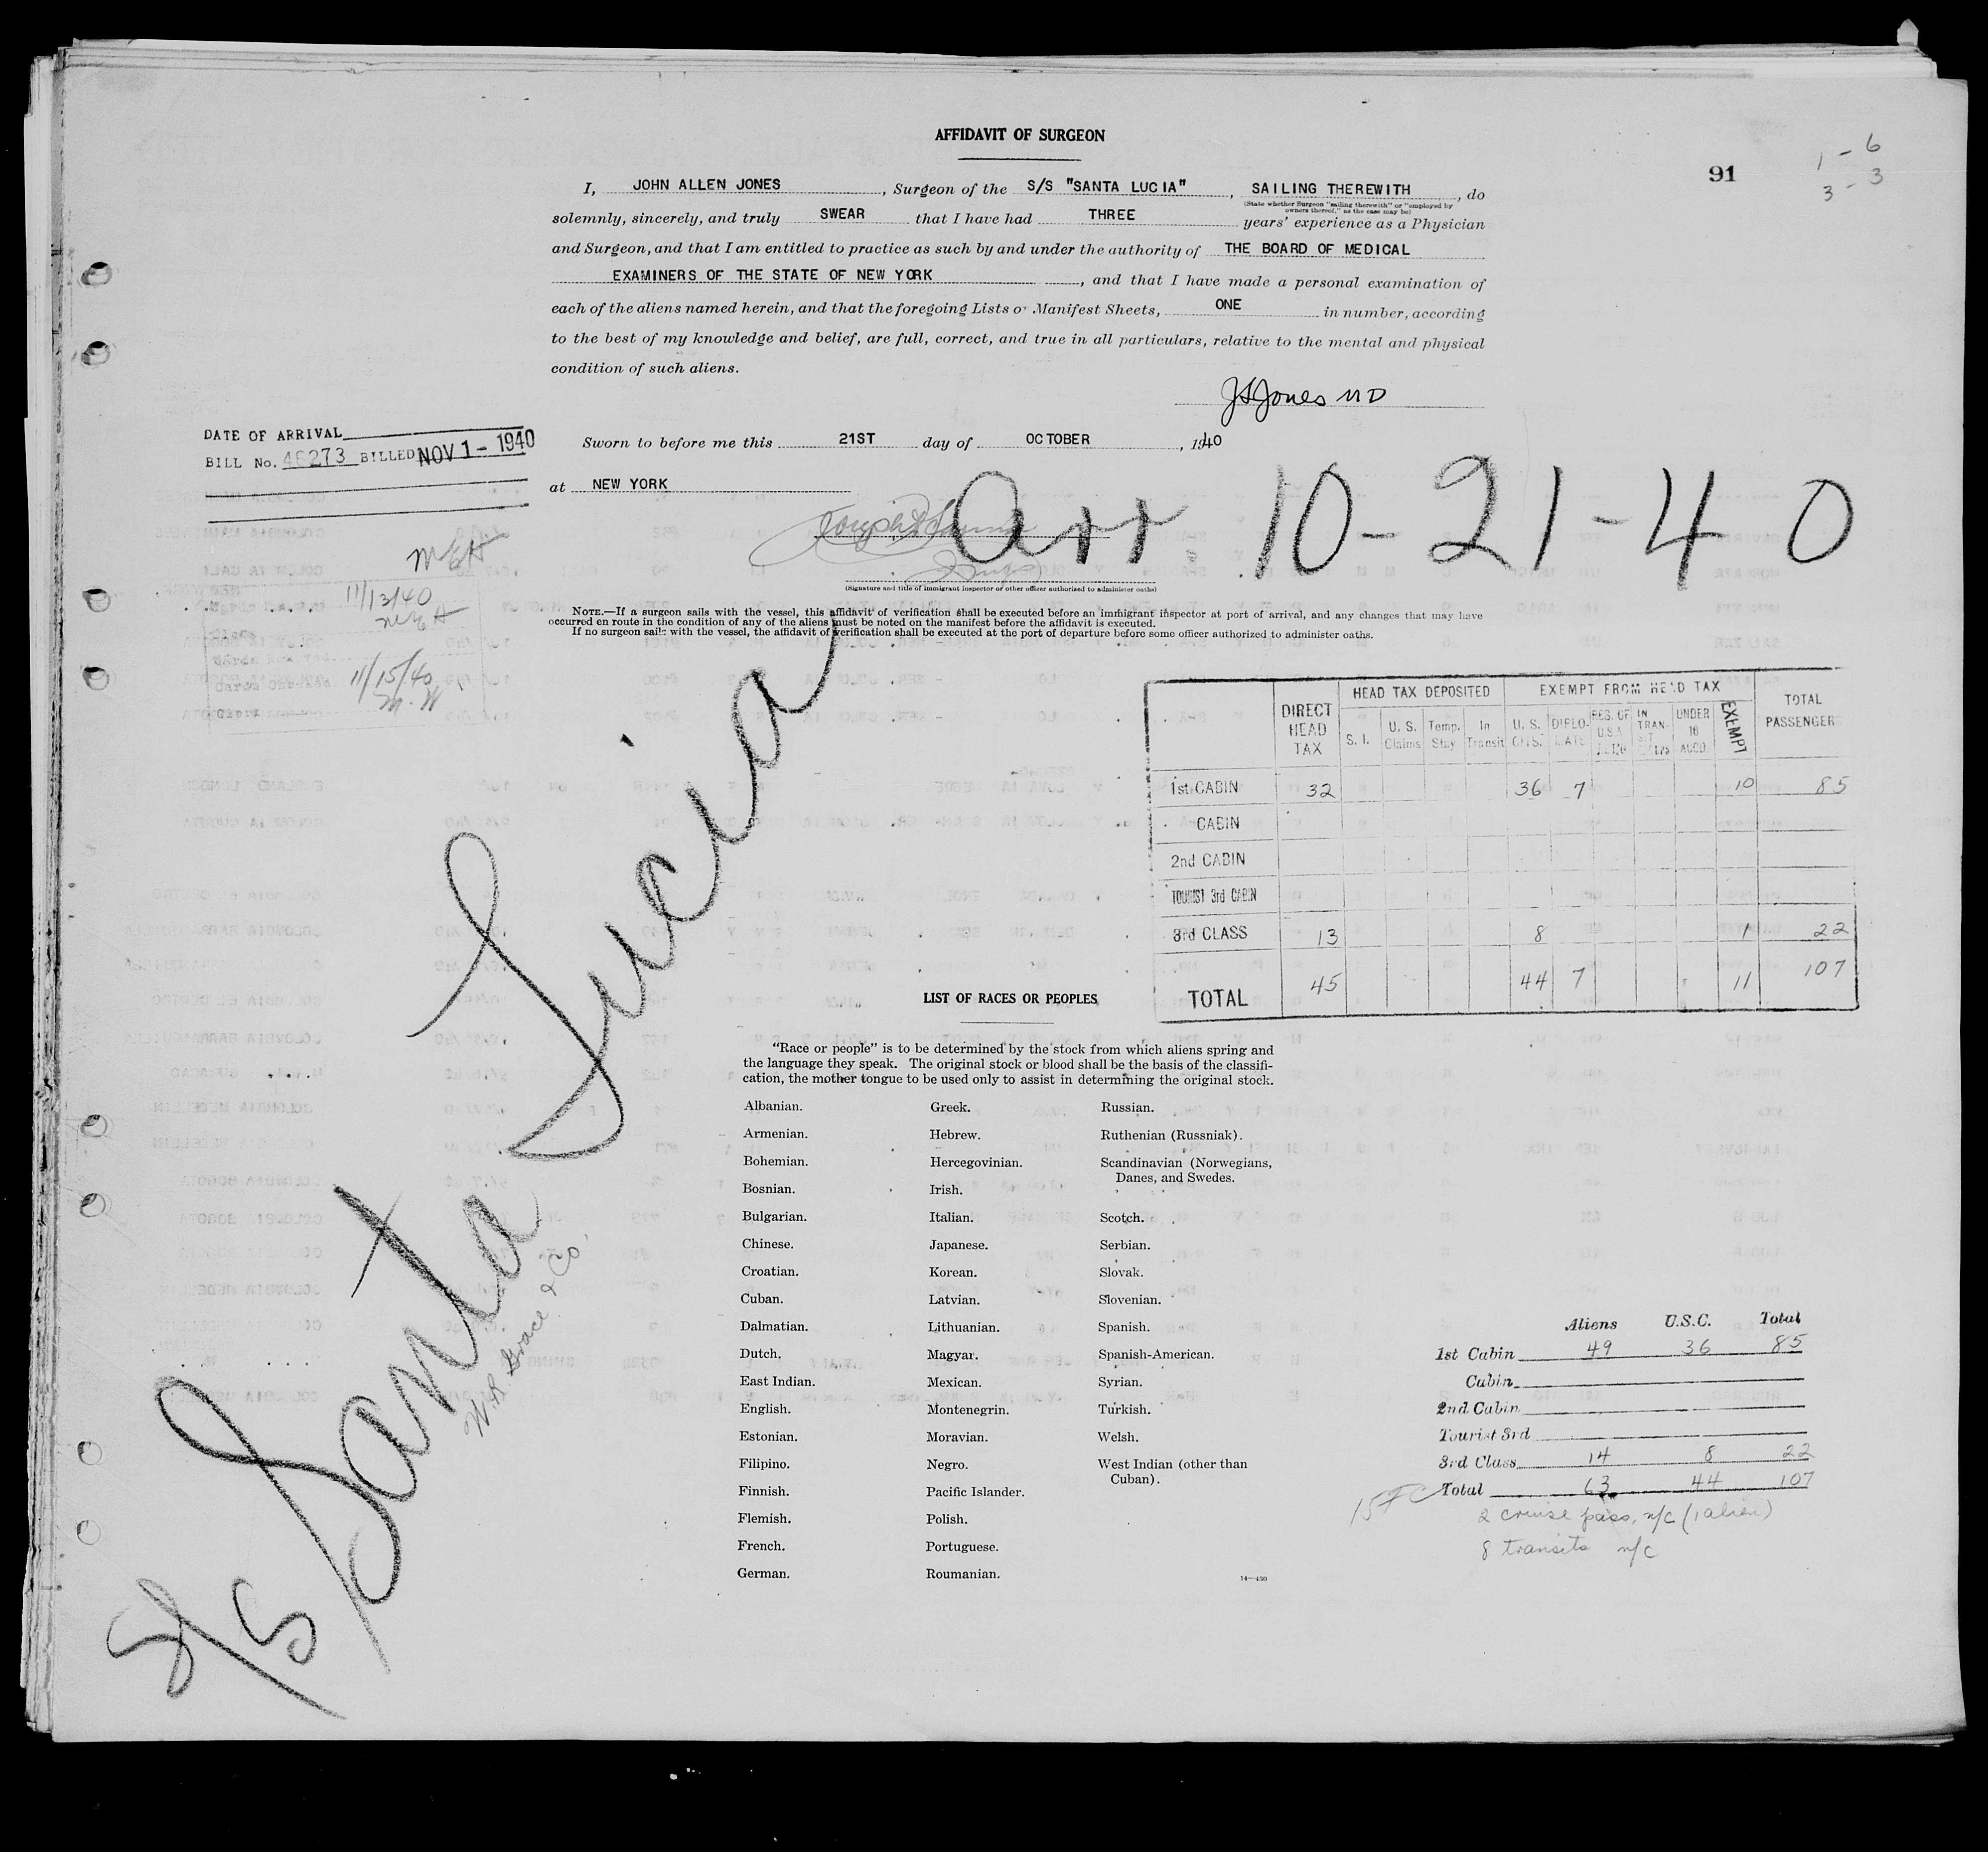 AFFIDAVIT OF SURGEON
91
1 - 6
3 - 3
I, JOHN ALLEN JONES, Surgeon of the S/S "SANTA LUCIA", SAILING THEREWITH, do
(State whether Surgeon "sailing therewith" or "employed by
owners thereof," as the case may be)
solemnly, sincerely, and truly SWEAR that I have had THREE years' experience as a Physician
and Surgeon, and that I am entitled to practice as such by and under the authority of THE BOARD OF MEDICAL
EXAMINERS OF THE STATE OF NEW YORK, and that I have made a personal examination of
each of the aliens named herein, and that the foregoing Lists or Manifest Sheets, ONE in number, according
to the best of my knowledge and belief, are full, correct, and true in all particulars, relative to the mental and physical
condition of such aliens.
Jones MD
DATE OF ARRIVAL
BILL No. 46273 BILLED NOV 1 - 1940
Sworn to before me this 21ST day of OCTOBER, 1940
at NEW YORK
arr. 10-21-40
(Signature and title of immigrant inspector or other officer authorized to administer oaths)
MEH
11/13/40
MEH
11/15/40
M.W
NOTE.—If a surgeon sails with the vessel, this affidavit of verification shall be executed before an immigrant inspector at port of arrival, and any changes that may have
occurred en route in the condition of any of the aliens must be noted on the manifest before the affidavit is executed.
If no surgeon sails with the vessel, the affidavit of verification shall be executed at the port of departure before some officer authorized to administer oaths.
DIRECT HEAD TAX
HEAD TAX DEPOSITED
EXEMPT FROM HEAD TAX
TOTAL PASSENGERS
S. I. U. S. Claims Temp. Stay In Transit U. S. CITS. DIPLOMATS RES. OF U.S.A. IN TRANSIT UNDER 16 ACCD. EXEMPT
1st CABIN 32 36 7 10 85
CABIN
2nd CABIN
TOURIST 3rd CABIN
3rd CLASS 13 8 1 22
TOTAL 45 44 7 11 107
S/S Santa Lucia
W.R. Grace & Co.
LIST OF RACES OR PEOPLES
"Race or people" is to be determined by the stock from which aliens spring and
the language they speak. The original stock or blood shall be the basis of the classifi-
cation, the mother tongue to be used only to assist in determining the original stock.
Albanian. Greek. Russian.
Armenian. Hebrew. Ruthenian (Russniak).
Bohemian. Hercegovinian. Scandinavian (Norwegians,
Danes, and Swedes.
Bosnian. Irish.
Bulgarian. Italian. Scotch.
Chinese. Japanese. Serbian.
Croatian. Korean. Slovak.
Cuban. Latvian. Slovenian.
Dalmatian. Lithuanian. Spanish.
Dutch. Magyar. Spanish-American.
East Indian. Mexican. Syrian.
English. Montenegrin. Turkish.
Estonian. Moravian. Welsh.
Filipino. Negro. West Indian (other than
Cuban).
Finnish. Pacific Islander.
Flemish. Polish.
French. Portuguese.
German. Roumanian.
14—430
Aliens U.S.C. Total
1st Cabin 49 36 85
Cabin
2nd Cabin
Tourist 3rd
3rd Class 14 8 22
Total 63 44 107
2 cruise pass, n/c (1 alien)
8 transits n/c